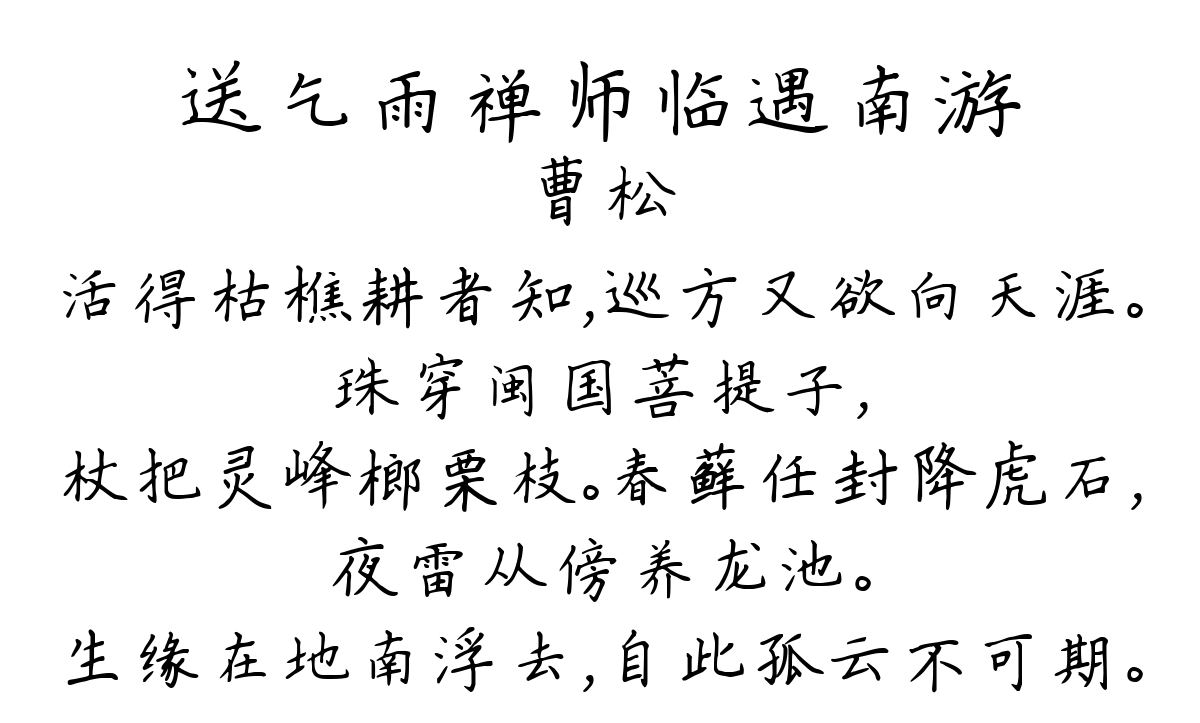 送乞雨禅师临遇南游
曹松
活得枯樵耕者知,巡方又欲向天涯。
珠穿闽国菩提子,
杖把灵峰榔栗枝。春藓任封降虎石,
夜雷从傍养龙池。
生缘在地南浮去,自此孤云不可期。